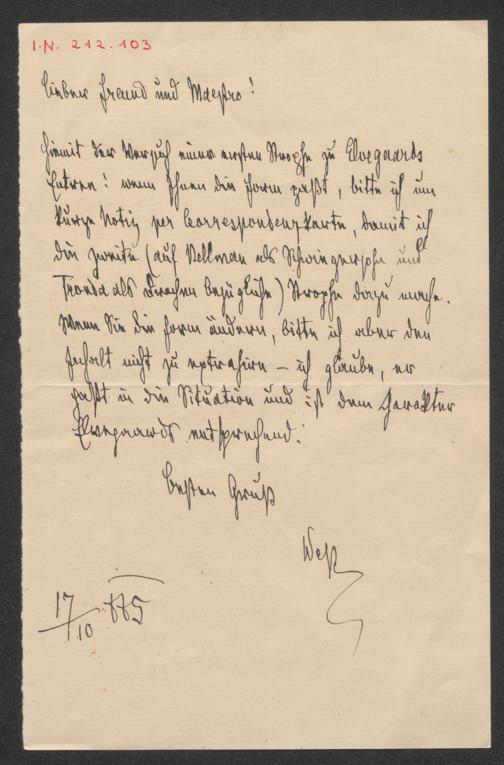 I.N. 212.103
Lieber Freund und Maestro!
Hiemit der Versuch einer ersten Strophe zu Elvegaards
Entree! wenn Ihnen die Form paßt, bitte ich um
kurze Notiz per Correspondenzkarte, damit ich
die zweite (auf Bellman als Schwiegersohn und
als Drachen bezügliche) Strophe dazu mache.
Wenn Sie die Form ändern, bitte ich aber den
Inhalt nicht zu – ich glaube, er
paßt in die Situation und ist dem Charakter
Elvegaards entsprechend.
Besten Gruß
West
17/10 885